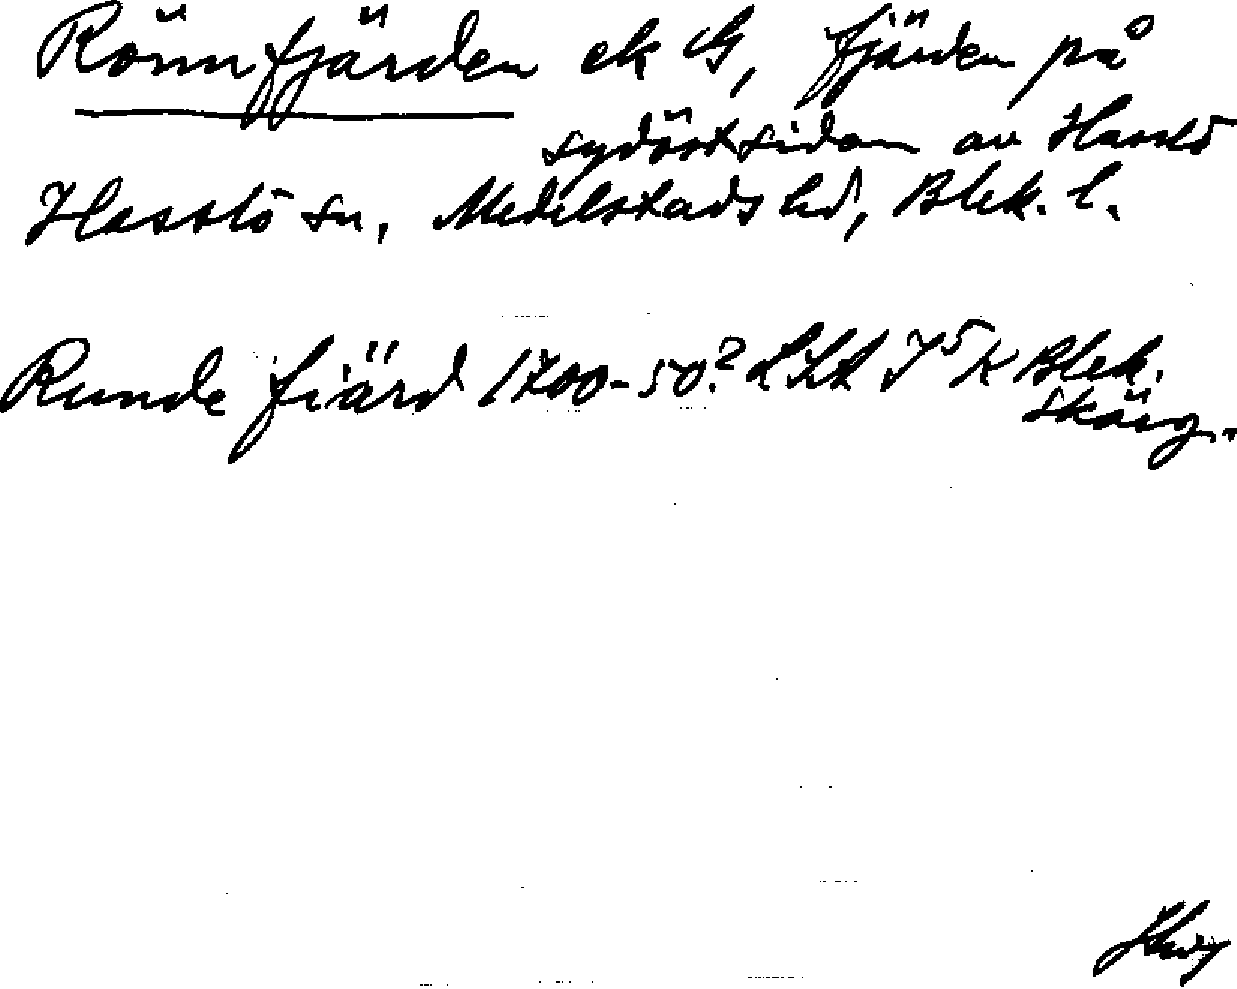 Rönnfjärden ek G, fjärden på
sydöstsidan av Hasslö
Hasslö sn, Medelstads hd, Blek. l.
Runde fiärd 1700-50? LSA J⁵ K Blek.
skärg.